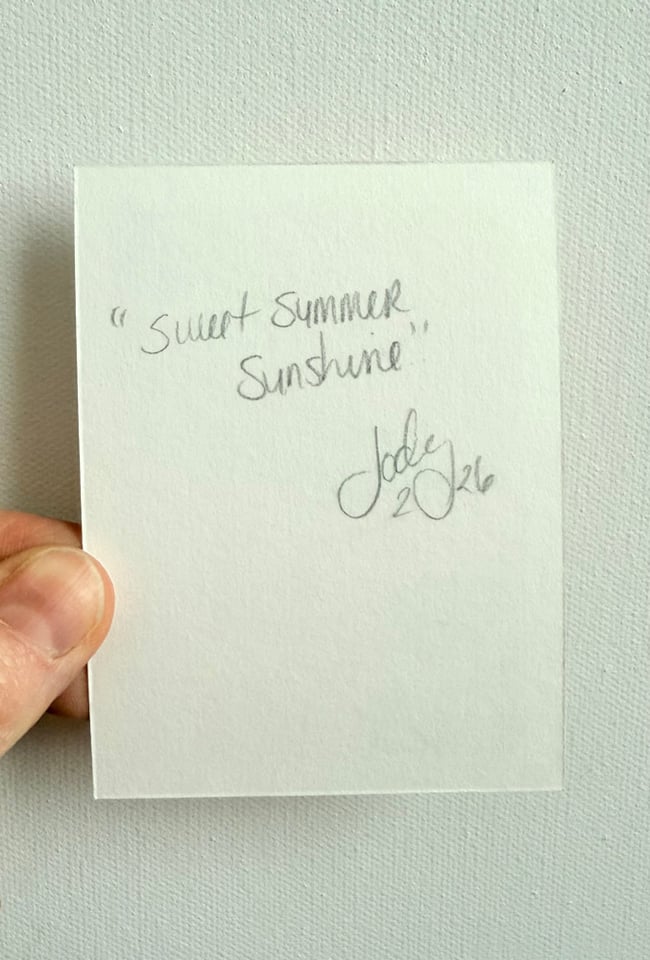 "Sweet Summer
Sunshine"
Jody
2026